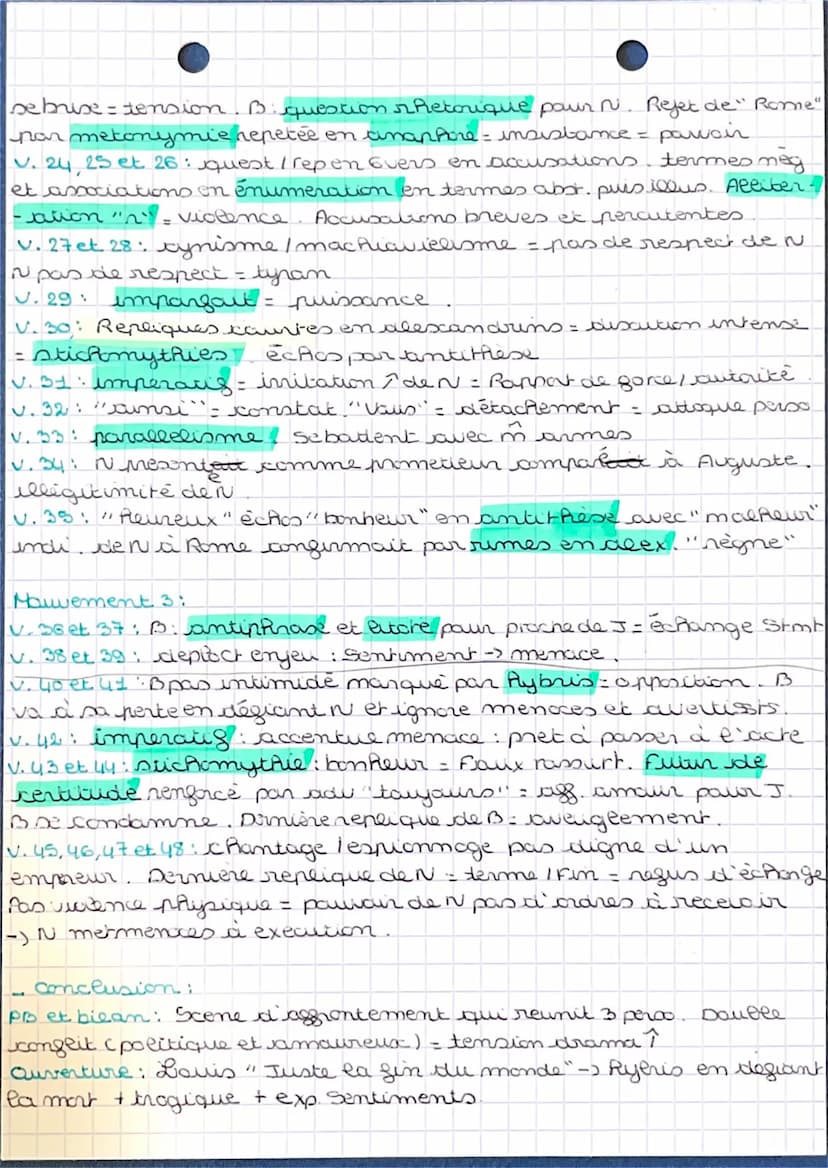 se brise = tension. B: question rhetorique pour N. Rejet de "Rome"
par metonymie repetée en anaphore = insistance = pouvoir
V. 24, 25 et 26 : quest / rep en 6 vers en accusations. termes nég
et associations en énumeration en termes abst. puis illus. Alliter-
-ation "r" = violence. Accusations breves et percutentes
V. 27 et 28 : cynisme / machiavielisme = pas de respect de N
N pas de respect = tyran
V. 29 : imparfait = puissance.
V. 30 : Repliques courtes en alexcandrins = discution intense
= stichomythies, échos par antithèse
V. 31 : imperatif = imitation ↑ de N = Rapport de force / autorité
V. 32 : "ainsi" = constat. "Vous" = détachement = attaque perso
V. 33 : parallelisme : se battent avec m̂ armes
V. 34 : N présenté comme prometteur comparé à Auguste.
illégitimité de N
V. 35 : "Heureux" échos "bonheur" en antithèse avec "malheur"
indi. de N à Rome confirmait par rimes en alex. "règne"
Mouvement 3 :
V. 36 et 37 : B: antiphrase et litote pour proche de J = échange Stmt
V. 38 et 39 : deplact enjeu : sentiment -> menace.
V. 40 et 41 : B pas intimidé marqué par hybris = opposition. B
va à sa perte en défiant N et ignore menaces et avertissts.
V. 42 : imperatif : accentue menace : pret à passer à l'acte
V. 43 et 44 : stichomythie : bonheur = Faux rassurt. Futur de
certitude renforcé par adv "toujours" = aff. amour pour J.
B se condamne. Dernière replique de B = aveuglement.
V. 45, 46, 47 et 48 : chantage / espionnage pas digne d'un
empreur. Dernière replique de N = terme / Fin = refus d'échange
Pas violence physique = pouvoir de N pas d'ordres à recevoir
-> N met menaces à execution.
- Conclusion :
PB et bilan : Scene d'affrontement qui reunit 3 perso. Double
conflit (politique et amoureux) = tension drama ↑
Ouverture : Louis "Juste la fin du monde" -> Hybris en défiant
la mort + tragique + exp. Sentiments.